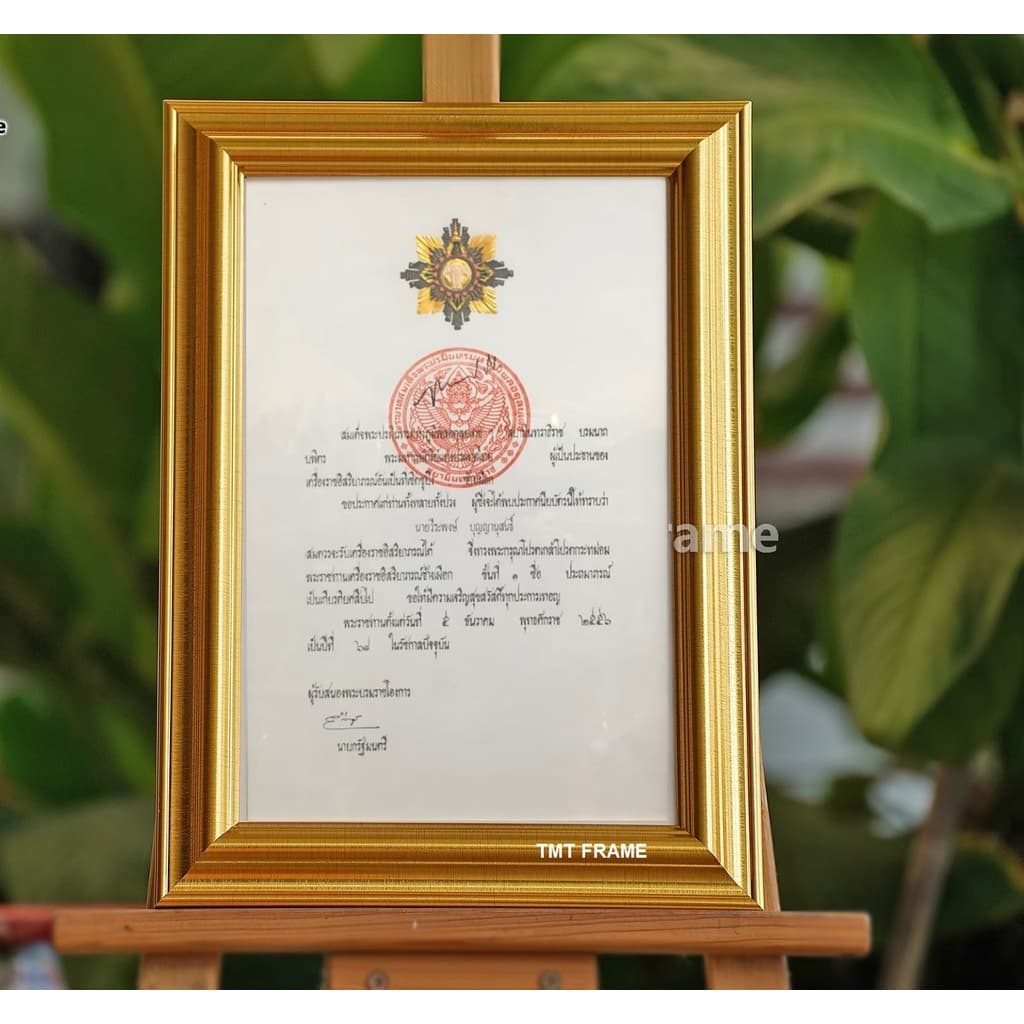 e
สมเด็จพระปรมินทรมหาภูมิพลอดุลยเดช สยามินทราธิราช บรมนาถ
บพิตร ผู้เป็นประธานของ
เครื่องราชอิสริยาภรณ์อันเป็นที่เชิดชูยิ่งช้างเผือก
ขอประกาศแก่ท่านทั้งหลายทั้งปวง ผู้ซึ่งจะได้พบประกาศนียบัตรนี้ให้ทราบว่า
นายวีระพงษ์ บุญญานุสนธิ์
สมควรจะรับเครื่องราชอิสริยาภรณ์ได้ จึ่งทรงพระกรุณาโปรดเกล้าโปรดกระหม่อม
พระราชทานเครื่องราชอิสริยาภรณ์ช้างเผือก ชั้นที่ ๑ ชื่อ ประถมาภรณ์
เป็นเกียรติยศสืบไป ขอให้มีความเจริญสุขสวัสดิ์ทุกประการเทอญ
พระราชทานตั้งแต่วันที่ ๕ ธันวาคม พุทธศักราช ๒๕๕๖
เป็นปีที่ ๖๘ ในรัชกาลปัจจุบัน
ผู้รับสนองพระบรมราชโองการ
นายกรัฐมนตรี
rame
TMT FRAME